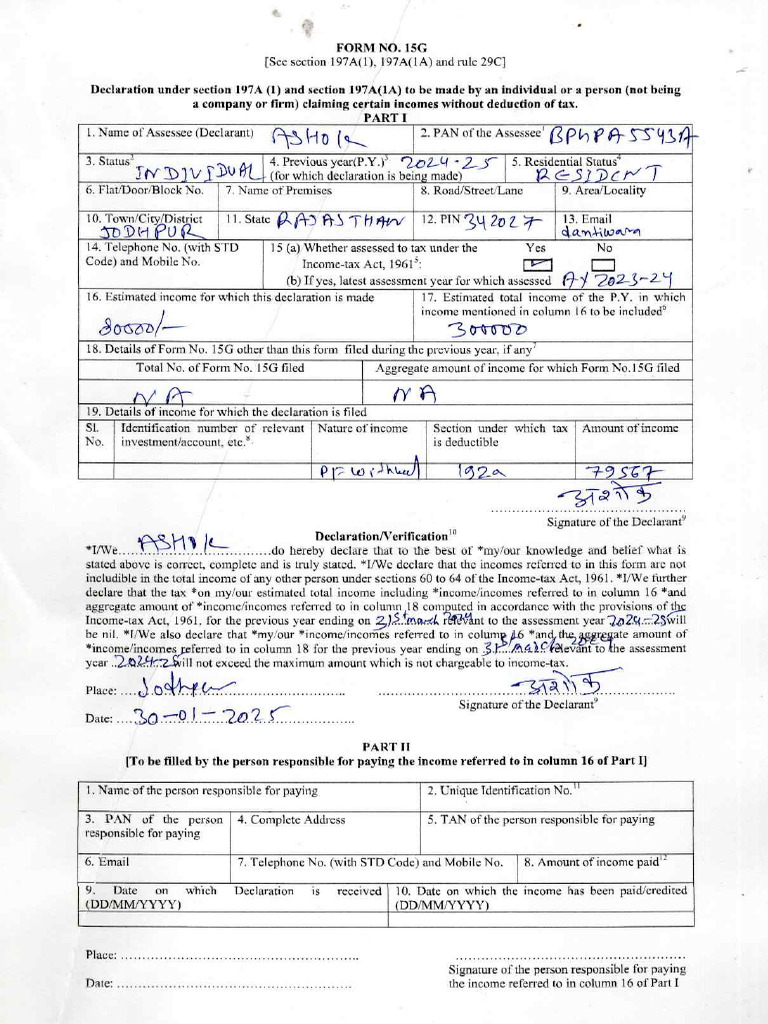 FORM NO. 15G
[See section 197A(1), 197A(1A) and rule 29C]
Declaration under section 197A (1) and section 197A(1A) to be made by an individual or a person (not being
a company or firm) claiming certain incomes without deduction of tax.
PART I
1. Name of Assessee (Declarant) ASHOK 2. PAN of the Assessee1 BPHPA5543A
3. Status2 INDIVIDUAL 4. Previous year(P.Y.)3 2024-25 5. Residential Status4 RESIDENT
(for which declaration is being made)
6. Flat/Door/Block No. 7. Name of Premises 8. Road/Street/Lane 9. Area/Locality
10. Town/City/District 11. State RAJASTHAN 12. PIN 342027 13. Email
JODHPUR dantiwara
14. Telephone No. (with STD 15 (a) Whether assessed to tax under the Yes No
Code) and Mobile No. Income-tax Act, 19615:
(b) If yes, latest assessment year for which assessed AY 2023-24
16. Estimated income for which this declaration is made 17. Estimated total income of the P.Y. in which
income mentioned in column 16 to be included6
80000/- 300000
18. Details of Form No. 15G other than this form filed during the previous year, if any7
Total No. of Form No. 15G filed Aggregate amount of income for which Form No.15G filed
NA NA
19. Details of income for which the declaration is filed
Sl. Identification number of relevant Nature of income Section under which tax Amount of income
No. investment/account, etc.8 is deductible
PF withdral 192a 79567
अशोक
Signature of the Declarant9
Declaration/Verification10
*I/We ASHOK do hereby declare that to the best of *my/our knowledge and belief what is
stated above is correct, complete and is truly stated. *I/We declare that the incomes referred to in this form are not
includible in the total income of any other person under sections 60 to 64 of the Income-tax Act, 1961. *I/We further
declare that the tax *on my/our estimated total income including *income/incomes referred to in column 16 *and
aggregate amount of *income/incomes referred to in column 18 computed in accordance with the provisions of the
Income-tax Act, 1961, for the previous year ending on 31st march 2024 relevant to the assessment year 2024-25 will
be nil. *I/We also declare that *my/our *income/incomes referred to in column 16 *and the aggregate amount of
*income/incomes referred to in column 18 for the previous year ending on 31st march 2024 relevant to the assessment
year 2024-25 will not exceed the maximum amount which is not chargeable to income-tax.
Place: Jodhpur अशोक
Signature of the Declarant9
Date: 30-01-2025
PART II
[To be filled by the person responsible for paying the income referred to in column 16 of Part I]
1. Name of the person responsible for paying 2. Unique Identification No.11
3. PAN of the person 4. Complete Address 5. TAN of the person responsible for paying
responsible for paying
6. Email 7. Telephone No. (with STD Code) and Mobile No. 8. Amount of income paid12
9. Date on which Declaration is received 10. Date on which the income has been paid/credited
(DD/MM/YYYY) (DD/MM/YYYY)
Place:
Signature of the person responsible for paying
Date: the income referred to in column 16 of Part I